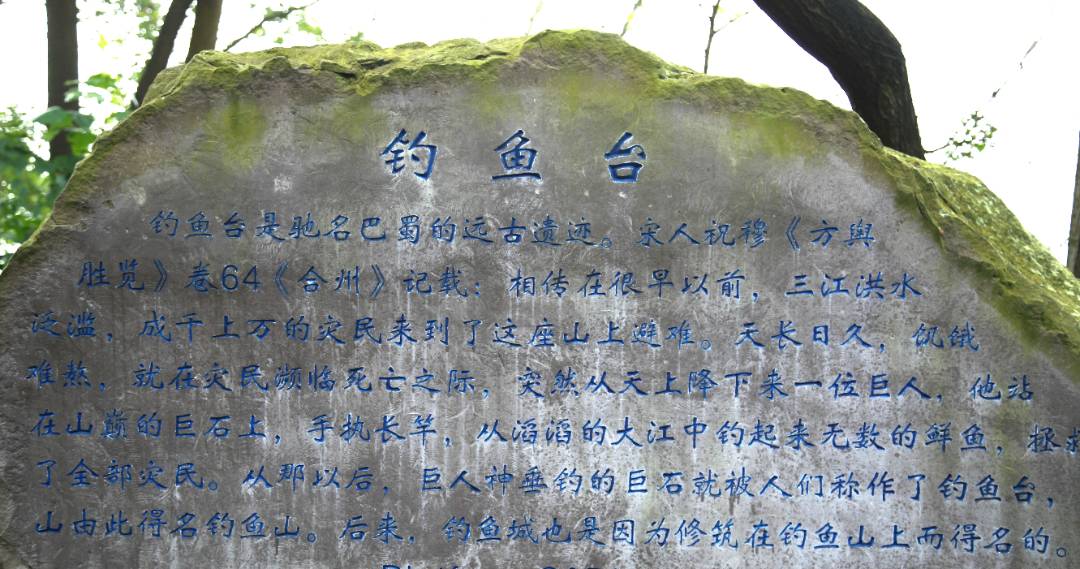 钓鱼台
钓鱼台是驰名巴蜀的远古遗迹。宋人祝穆《方舆
胜览》卷64《合州》记载：相传在很早以前，三江洪水
泛滥，成千上万的灾民来到了这座山上避难。天长日久，饥饿
难熬，就在灾民濒临死亡之际，突然从天上降下来一位巨人，他站
在山巅的巨石上，手执长竿，从滔滔的大江中钓起来无数的鲜鱼，拯救
了全部灾民。从那以后，巨人神垂钓的巨石就被人们称作了钓鱼台，
山由此得名钓鱼山。后来，钓鱼城也是因为修筑在钓鱼山上而得名的。